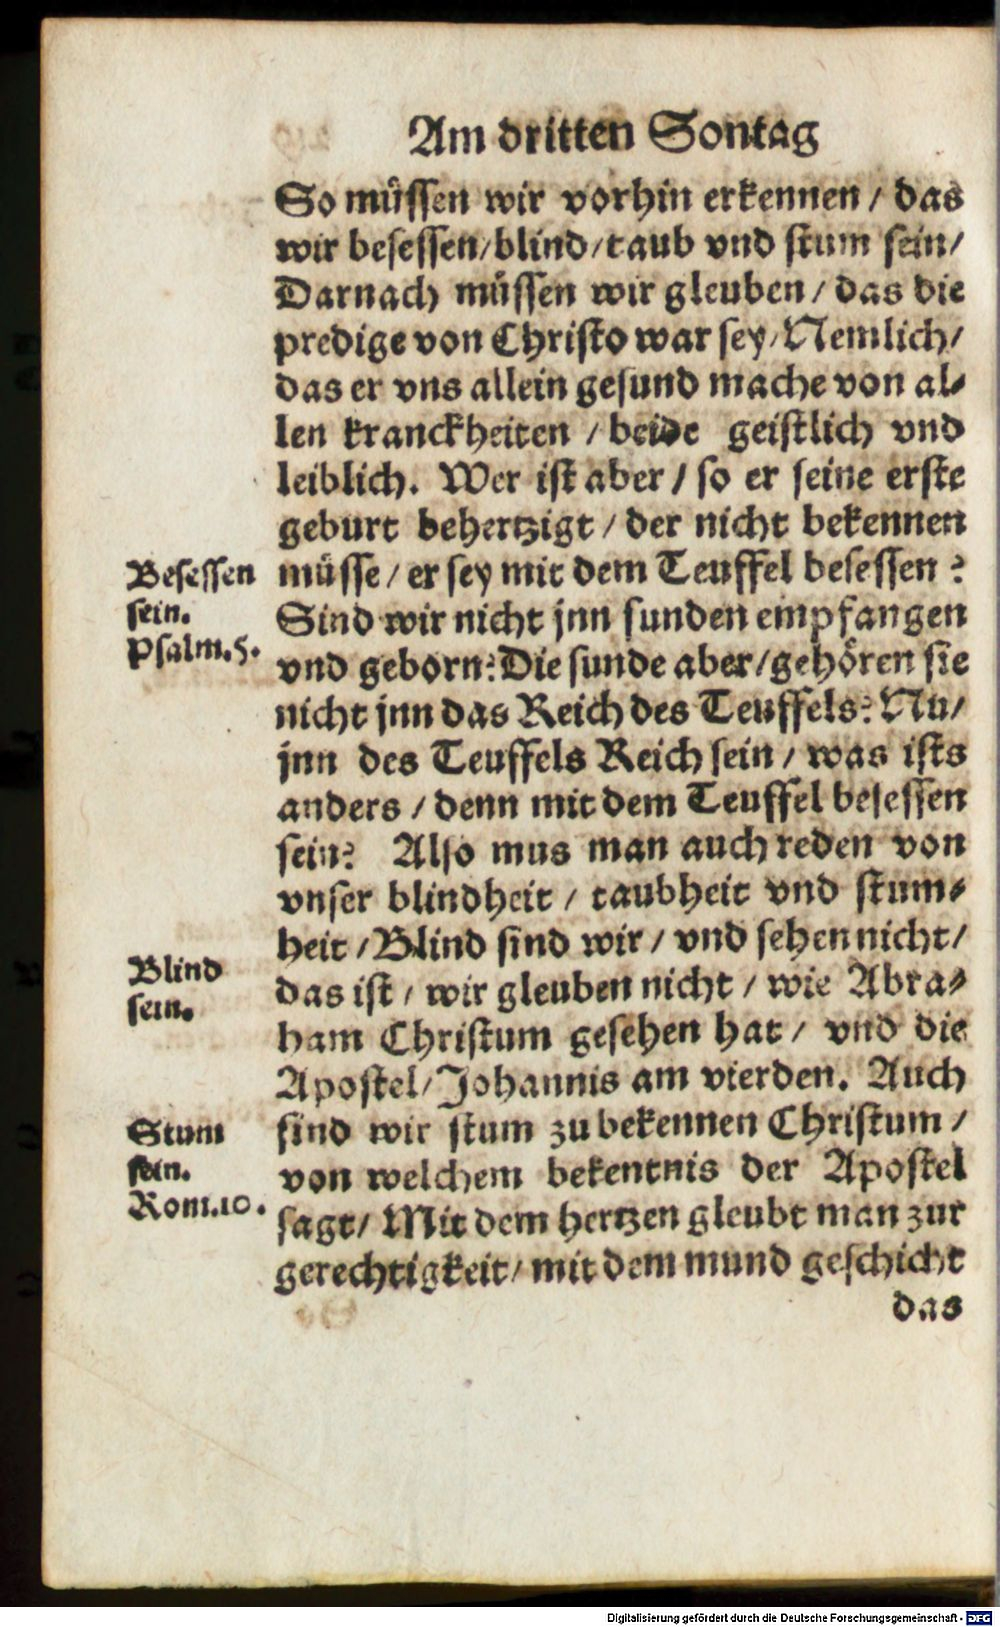 Am dritten Sontag
So müssen wir vorhin erkennen / das
wir besessen/blind/taub vnd stum sein/
Darnach müssen wir gleuben / das die
predige von Christo war sey/Nemlich/
das er vns allein gesund mache von al⸗
len kranckheiten / beide geistlich vnd
leiblich. Wer ist aber / so er seine erste
geburt behertzigt / der nicht bekennen
Besessen
sein.
Psalm.5.
müsse / er sey mit dem Teuffel besessen?
Sind wir nicht jnn sunden empfangen
vnd geborn? Die sunde aber/gehören sie
nicht jnn das Reich des Teuffels? Nu/
jnn des Teuffels Reich sein / was ists
anders / denn mit dem Teuffel besessen
sein? Also mus man auch reden von
vnser blindheit / taubheit vnd stum⸗
heit / Blind sind wir / vnd sehen nicht/
Blind
sein.
das ist / wir gleuben nicht / wie Abra⸗
ham Christum gesehen hat / vnd die
Apostel/Johannis am vierden. Auch
Stum
sein.
Rom.10.
sind wir stum zu bekennen Christum /
von welchem bekentnis der Apostel
sagt/ Mit dem hertzen gleubt man zur
gerechtigkeit/ mit dem mund geschicht
das
Digitalisierung gefördert durch die Deutsche Forschungsgemeinschaft - DFG